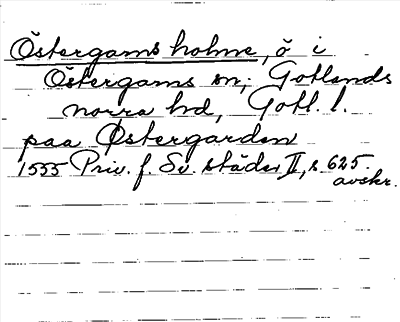 Östergams holme, ö i
Östergams sn, Gotlands
norra hd, Gotl. l.
paa Østergarden
1555 Priv. f. Sv. städer II, s. 625.
avskr.